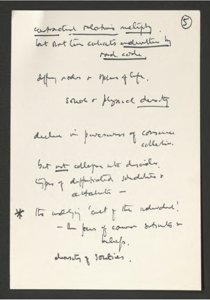 5
contractual relations multiply
but not the contracts underwritten by
moral order
differing modes & spheres of life.
social & physical density
decline in pervasiveness of conscience
collective.
but not collapse into disorder.
types of differentiated solidarities &
* the underlying 'cult of the individual'
- the form of common sentiments &
beliefs.
density of societies.